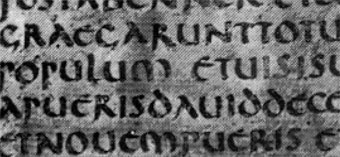 GRAEGARUNTTOTU
POPULUM ETUISISU
APUERISDAUIDDECE
ETNOUEMPUERIS ET